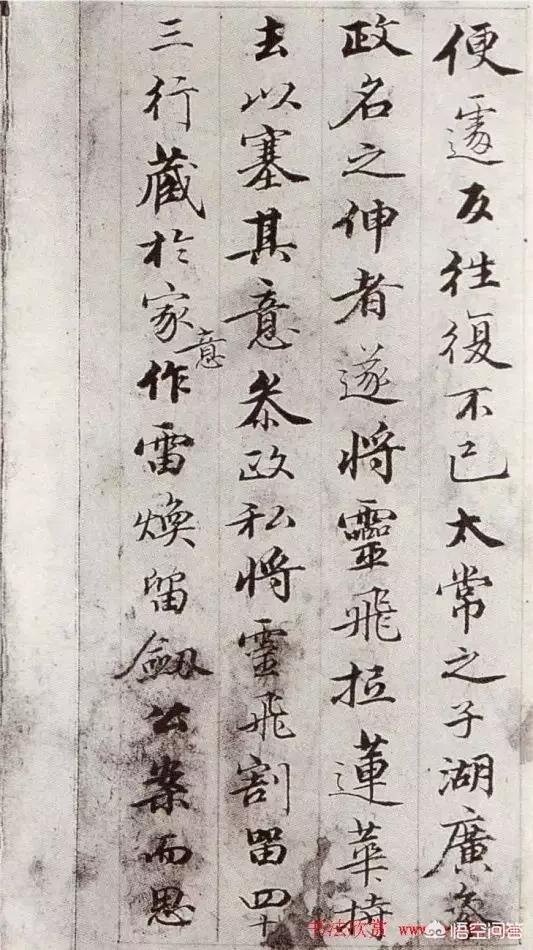 便遽反往復不已太常之子湖廣叅
政名之伸者遂將靈飛蓮華持
去以塞其意叅政私將靈飛割留四十
三行藏於家意作雷煥留劒公案而思
书法欣赏
悟空问答